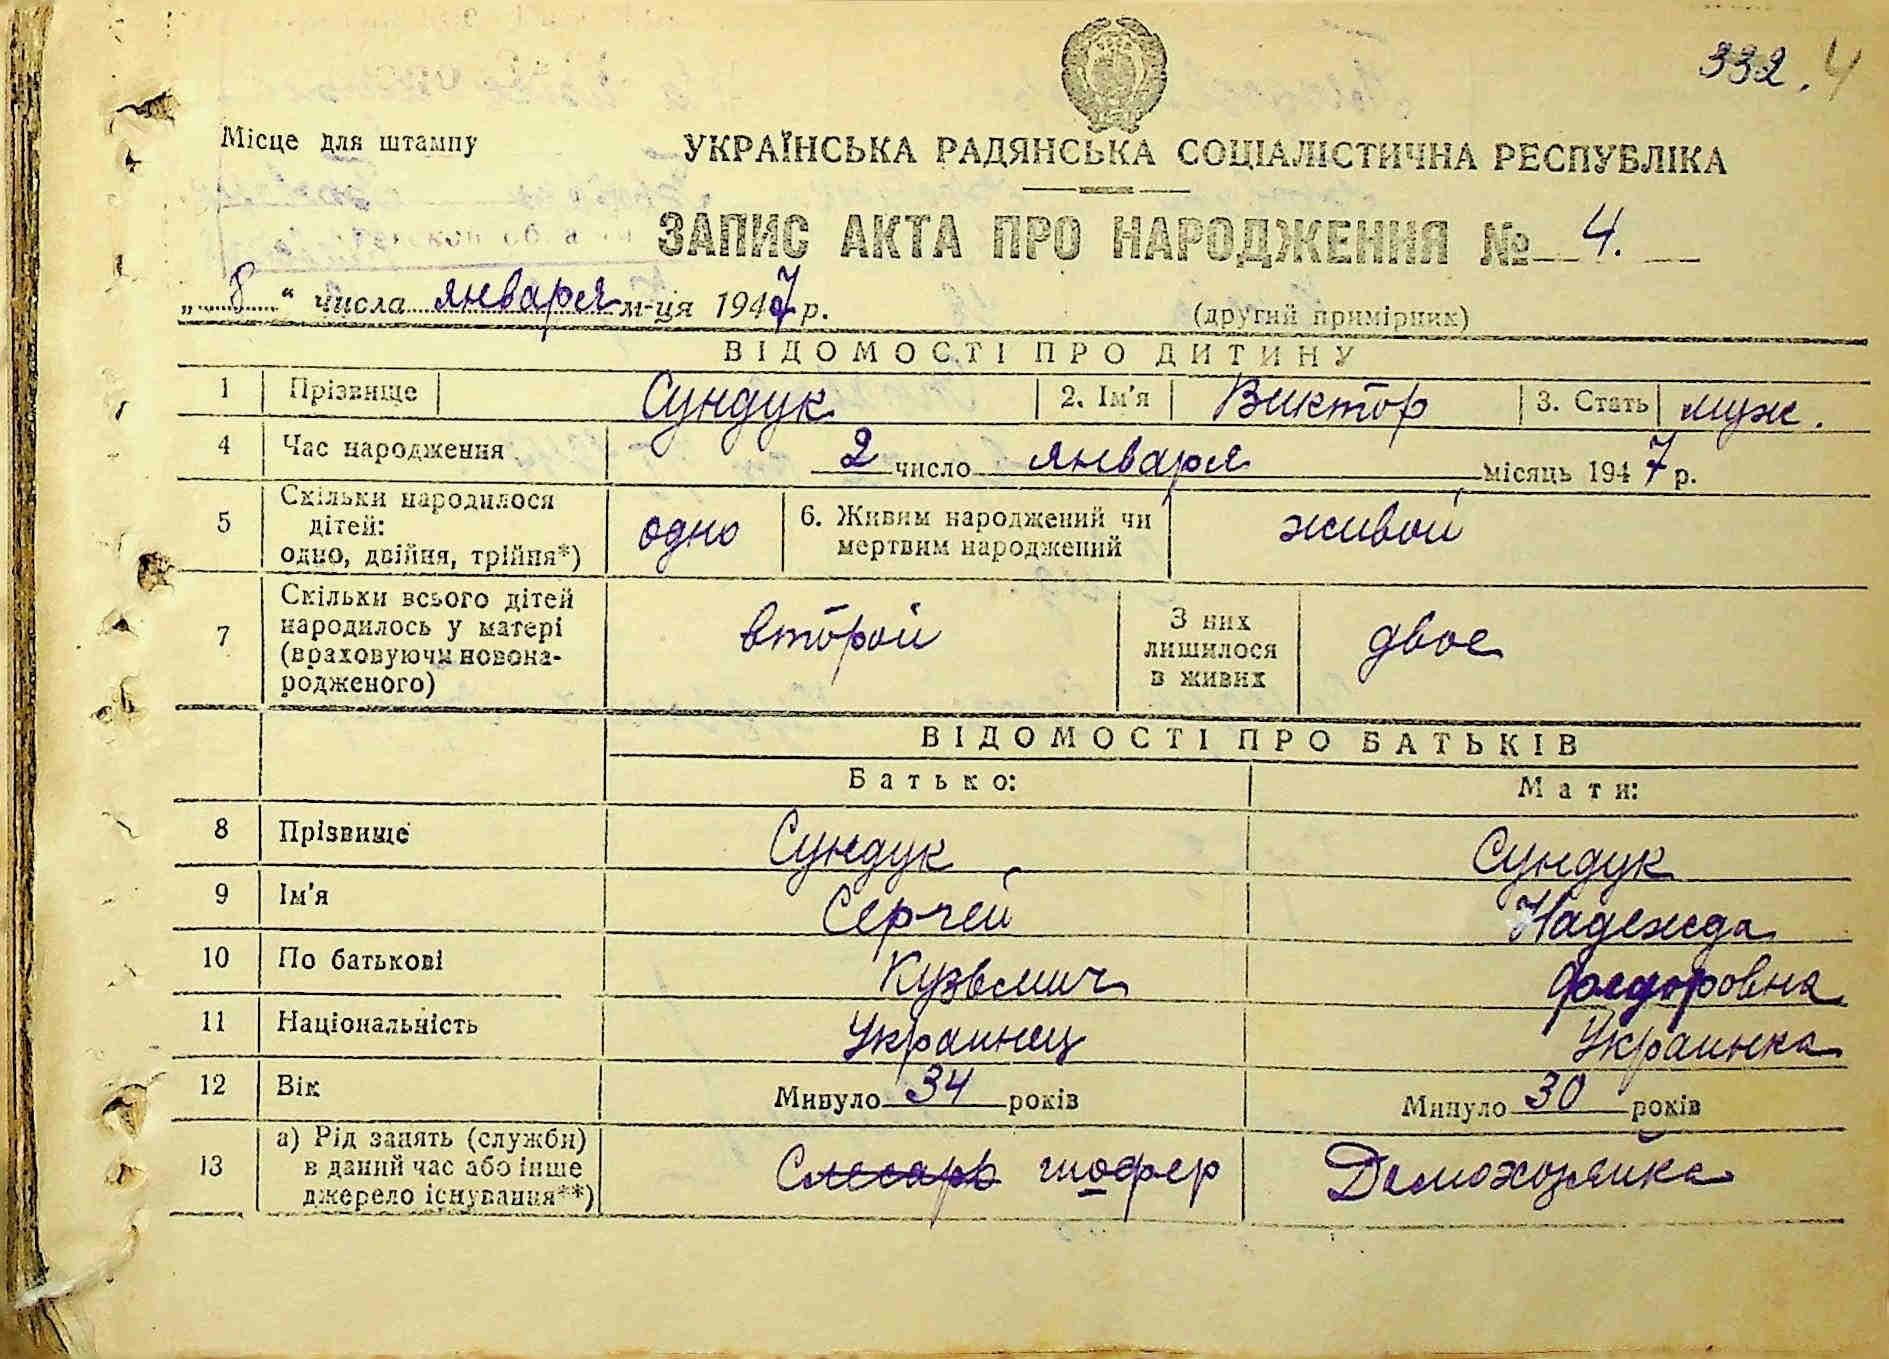 332. 4
Місце для штампу
УКРАЇНСЬКА РАДЯНСЬКА СОЦІАЛІСТИЧНА РЕСПУБЛІКА
ЗАПИС АКТА ПРО НАРОДЖЕННЯ № 4.
„ 8 “ числа января м-ця 1947 р.
(другий примірник)
ВІДОМОСТІ ПРО ДИТИНУ
1 Прізвище Сундук 2. Ім'я Виктор 3. Стать муж.
4 Час народження 2 число января місяць 1947 р.
5 Скільки народилося
дітей:
одно, двійня, трійня*)
одно
6. Живим народжений чи
мертвим народжений
живой
7 Скільки всього дітей
народилось у матері
(враховуючи новона-
родженого)
второй
З них
лишилося
в живих
двое
ВІДОМОСТІ ПРО БАТЬКІВ
Батько: Мати:
8 Прізвище Сундук Сундук
9 Ім'я Сергей Надежда
10 По батькові Кузьмич Федоровна
11 Національність Украинец Украинка
12 Вік Минуло 34 років Минуло 30 років
13 а) Рід занять (служби)
в даний час або інше
джерело існування**)
Слесарь шофер Домохозяйка